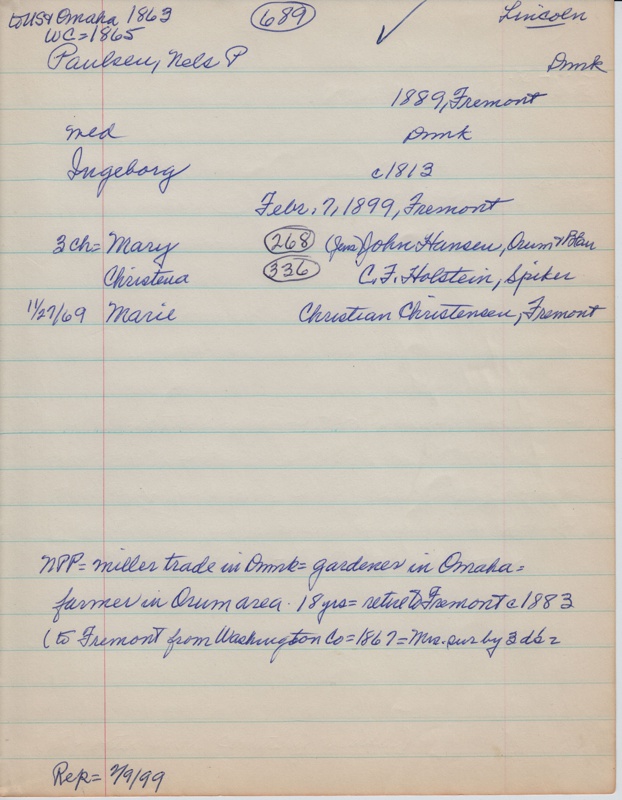 to US & Omaha 1863 689 Lincoln
WC=1865
Paulsen, Nels P Dnmk
1889, Fremont
med Dnmk
Ingeborg c1813
Febr. 7, 1899, Fremont
3ch= Mary 268 (Jens) John Hansen, Orum & Blair
Christena 336 C.F. Holstein, Spiker
11/27/69 Marie Christian Christensen, Fremont
NPP= miller trade in Dnmk= gardener in Omaha=
farmer in Orum area. 18 yrs= retire to Fremont c1883
(to Fremont from Washington Co=1867= Mrs. sur by 3 ds=
Rep= 2/9/99